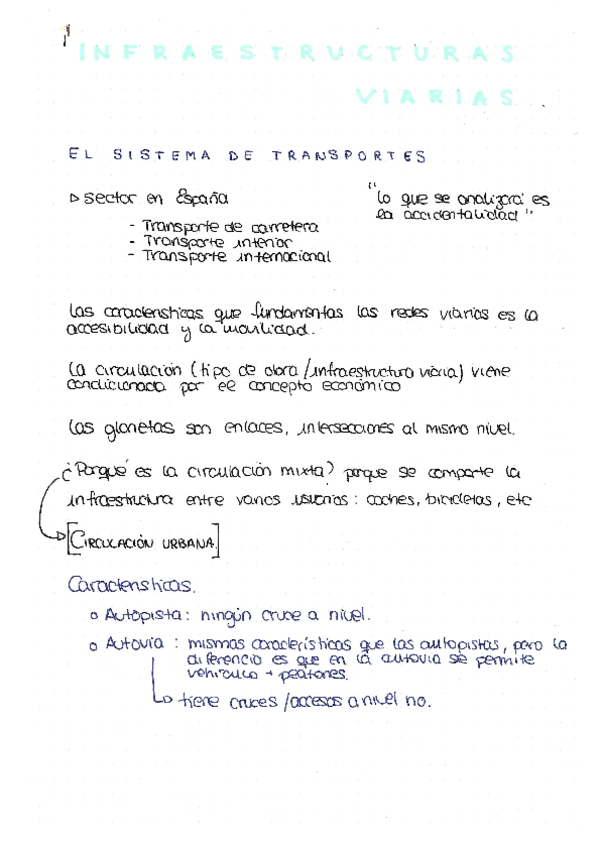 INFRAESTRUCTURAS
VIARIAS
EL SISTEMA DE TRANSPORTES
▷ sector en España
- Transporte de carretera
- Transporte interior
- Transporte internacional
"lo que se analizará es
la accidentalidad"
Las características que fundamentas las redes viarias es la
accesibilidad y la movilidad.
La circulación (tipo de obra/infraestructura viaria) viene
condicionada por el concepto económico
Las glorietas son enlaces, intersecciones al mismo nivel.
¿Porqué es la circulación mixta? porque se comparte la
infraestructura entre varios usuarios: coches, bicicletas, etc
[CIRCULACIÓN URBANA.]
Características.
o Autopista: ningún cruce a nivel.
o Autovía: mismas características que las autopistas, pero la
diferencia es que en la autovía se permite
vehículo + peatones.
↳ tiene cruces/accesos a nivel no.